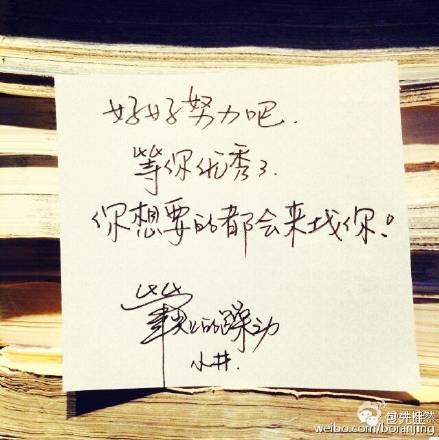 好好努力吧.
等你优秀了.
你想要的都会来找你!
笔尖上的躁动
小井.
weibo.com/boranjing